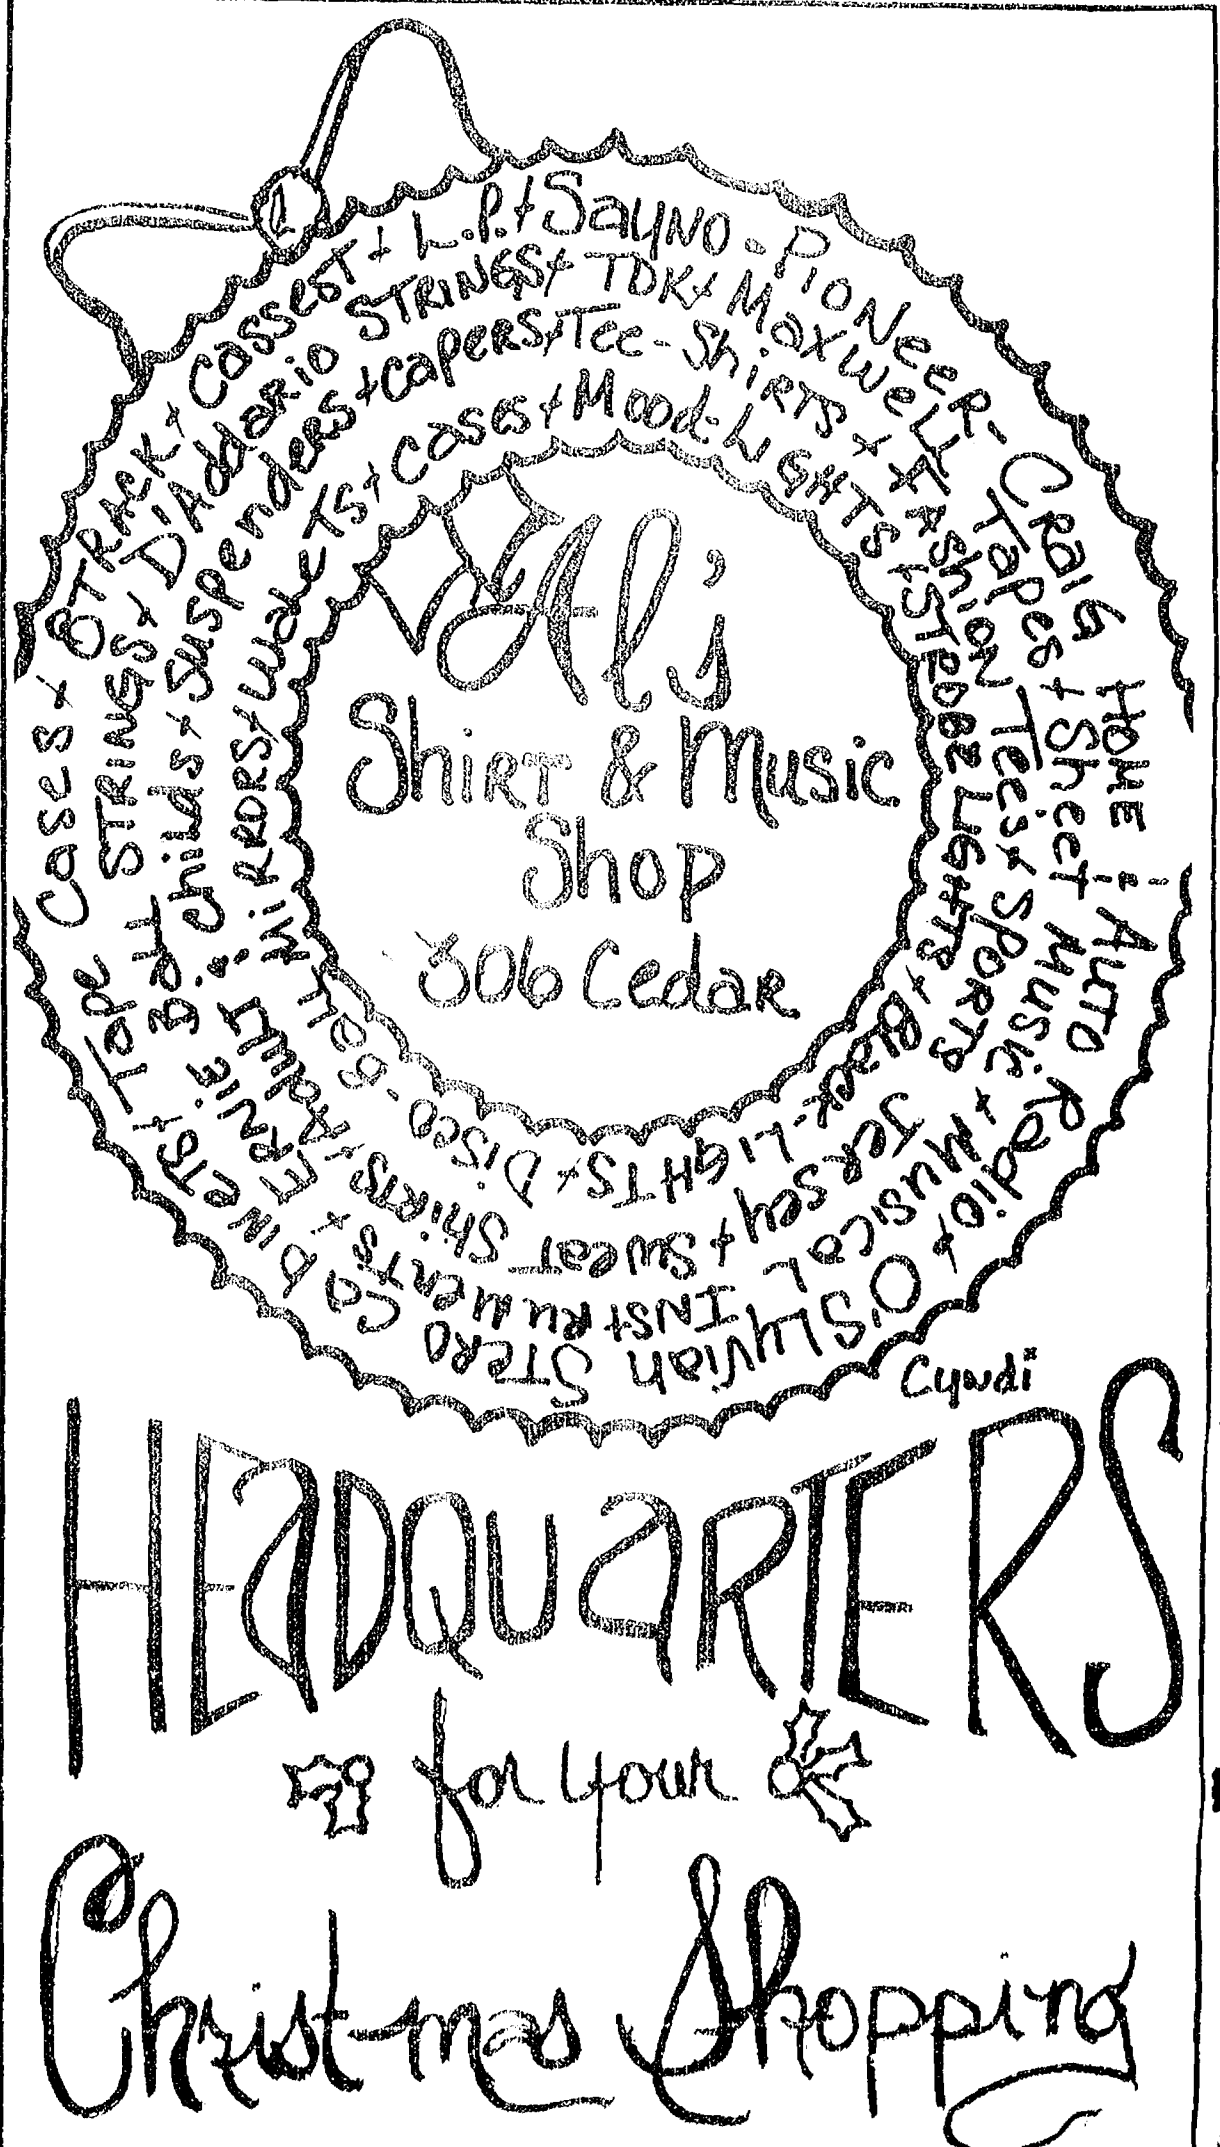 Cassest + L.P.+ Sayno - Pioneer - Craig Home & Auto Radio + O'Slyvian Stero Cabinets + Tape Cases + 8 Track +
D'Addario Strings + TDK + Maxwell Tapes + Sheet Music + Musical Instruments + Ernie Ball Strings +
Suspenders + Capers + Tee-Shirts + Fashion Tees + Sports Jersey + Sweat Shirts + Adult & Childs +
Cases + Mood-Lights + Strobe Lights + Black-Lights + Disco - Reg. Mirrors + Wallets +
Al's
Shirt & Music
Shop
306 Cedar
Cyndi
HEADQUARTERS
for your
Christmas Shopping